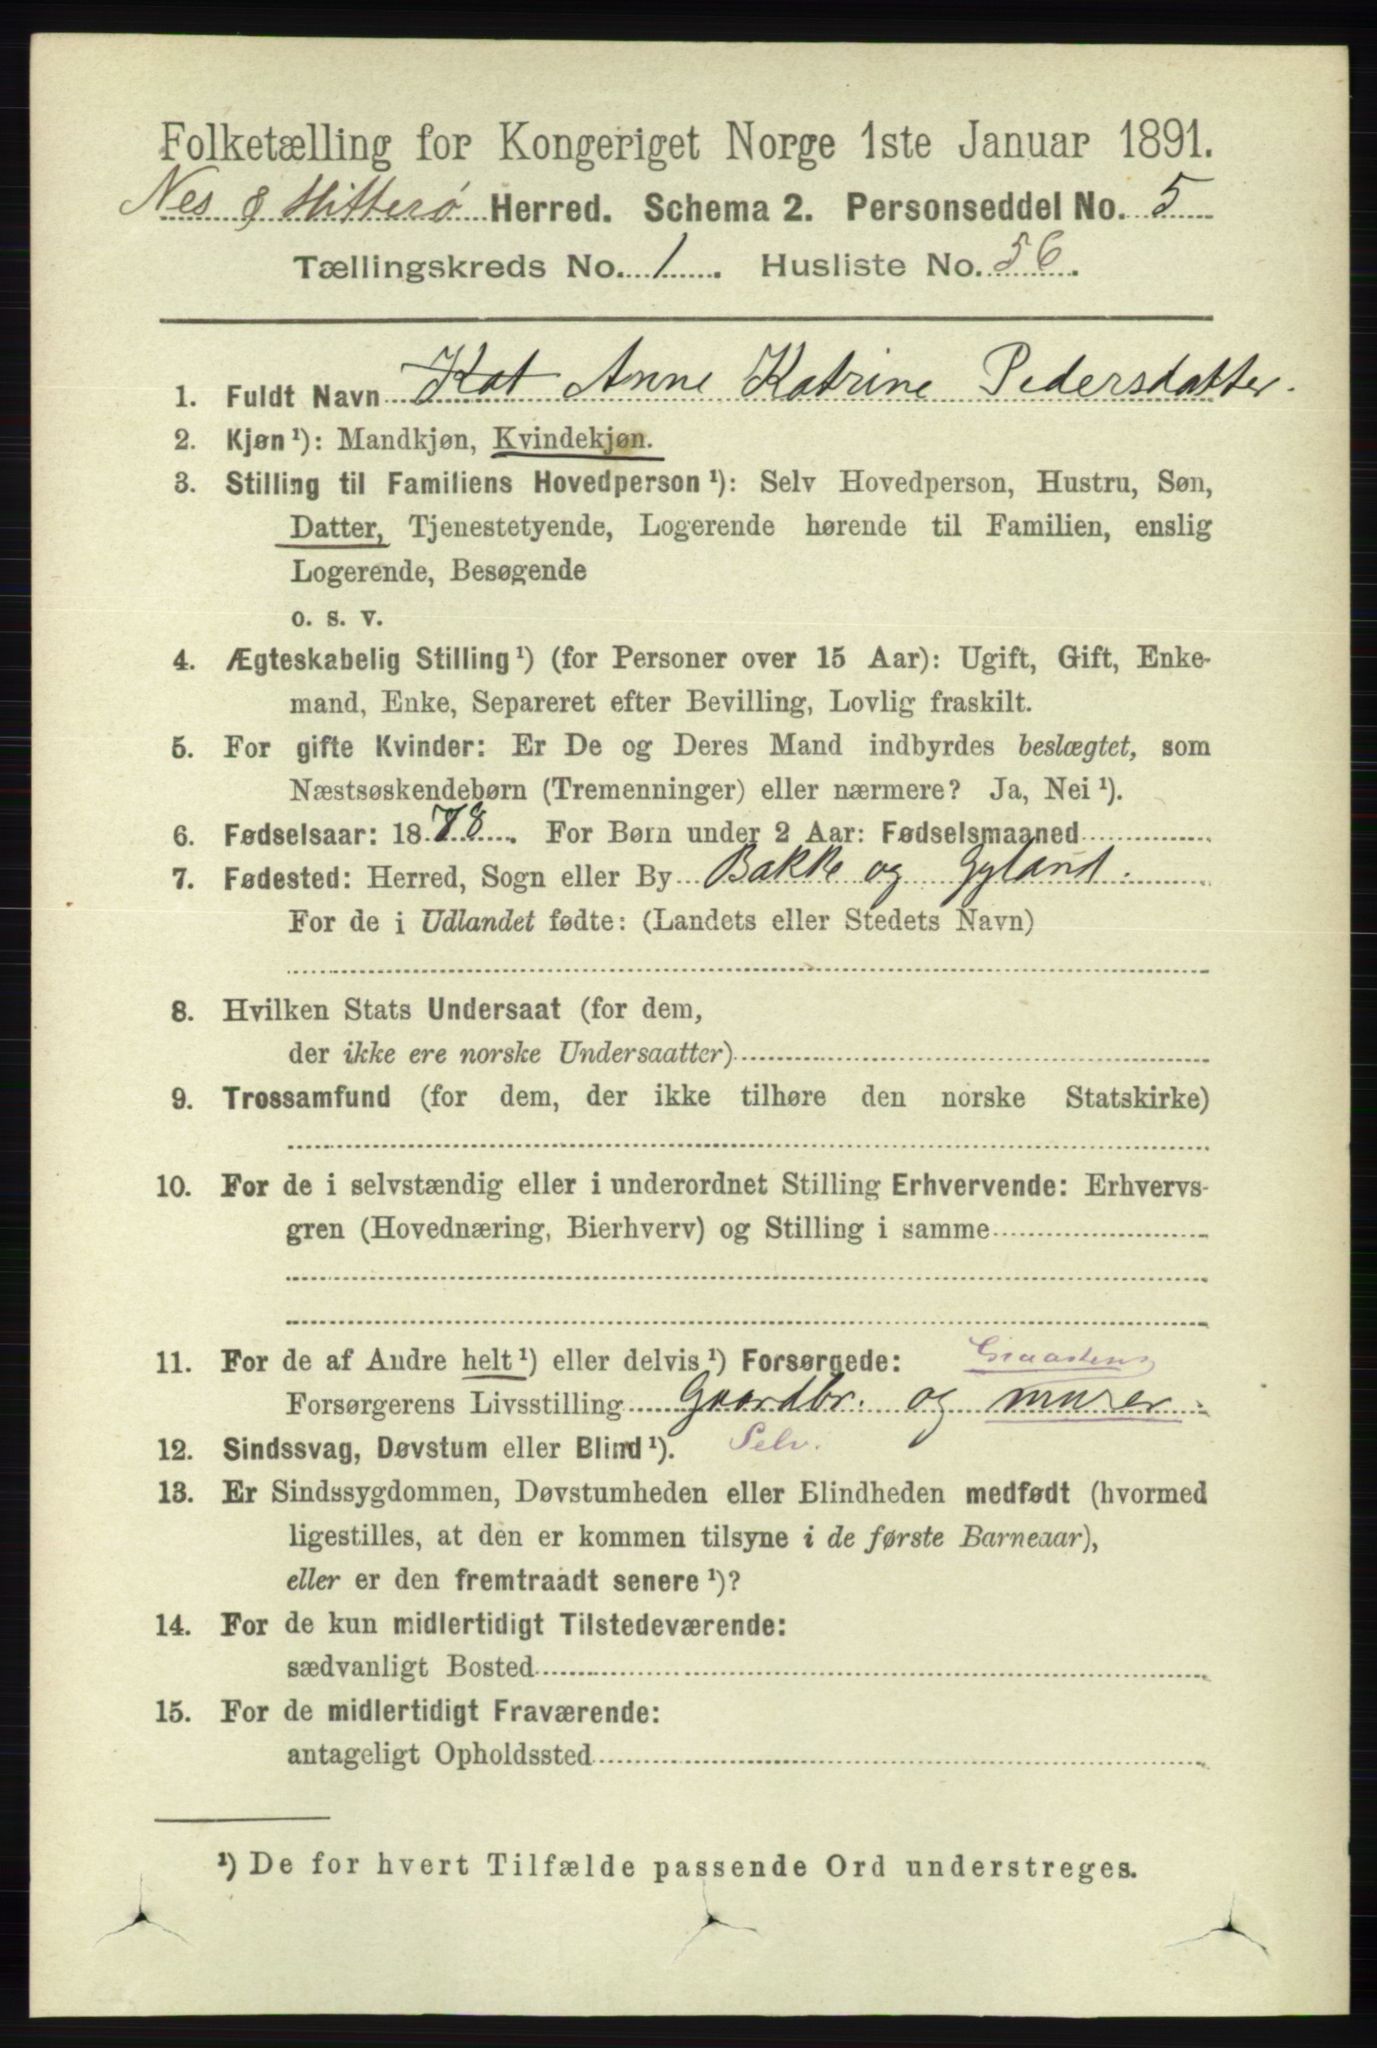 Folketælling for Kongeriget Norge 1ste Januar 1891.
Nes & Hitterø Herred. Schema 2. Personseddel No. 5
Tællingskreds No. 1. Husliste No. 56.
1. Fuldt Navn Kat Anne Katrine Pedersdatter.
2. Kjøn¹): Mandkjøn, Kvindekjøn.
3. Stilling til Familiens Hovedperson¹): Selv Hovedperson, Hustru, Søn,
Datter, Tjenestetyende, Logerende hørende til Familien, enslig
Logerende, Besøgende
o. s. v.
4. Ægteskabelig Stilling¹) (for Personer over 15 Aar): Ugift, Gift, Enke-
mand, Enke, Separeret efter Bevilling, Lovlig fraskilt.
5. For gifte Kvinder: Er De og Deres Mand indbyrdes beslægtet, som
Næstsøskendebørn (Tremenninger) eller nærmere? Ja, Nei¹).
6. Fødselsaar: 1878. For Børn under 2 Aar: Fødselsmaaned
7. Fødested: Herred, Sogn eller By Bakke og Gyland.
For de i Udlandet fødte: (Landets eller Stedets Navn)
8. Hvilken Stats Undersaat (for dem,
der ikke ere norske Undersaatter)
9. Trossamfund (for dem, der ikke tilhøre den norske Statskirke)
10. For de i selvstændig eller i underordnet Stilling Erhvervende: Erhvervs-
gren (Hovednæring, Bierhverv) og Stilling i samme
11. For de af Andre helt¹) eller delvis¹) Forsørgede: Graastens
Forsørgerens Livsstilling Gaardbr. og murer.
12. Sindssvag, Døvstum eller Blind¹). Selv.
13. Er Sindssygdommen, Døvstumheden eller Blindheden medfødt (hvormed
ligestilles, at den er kommen tilsyne i de første Barneaar),
eller er den fremtraadt senere¹)?
14. For de kun midlertidigt Tilstedeværende:
sædvanligt Bosted
15. For de midlertidigt Fraværende:
antageligt Opholdssted
¹) De for hvert Tilfælde passende Ord understreges.